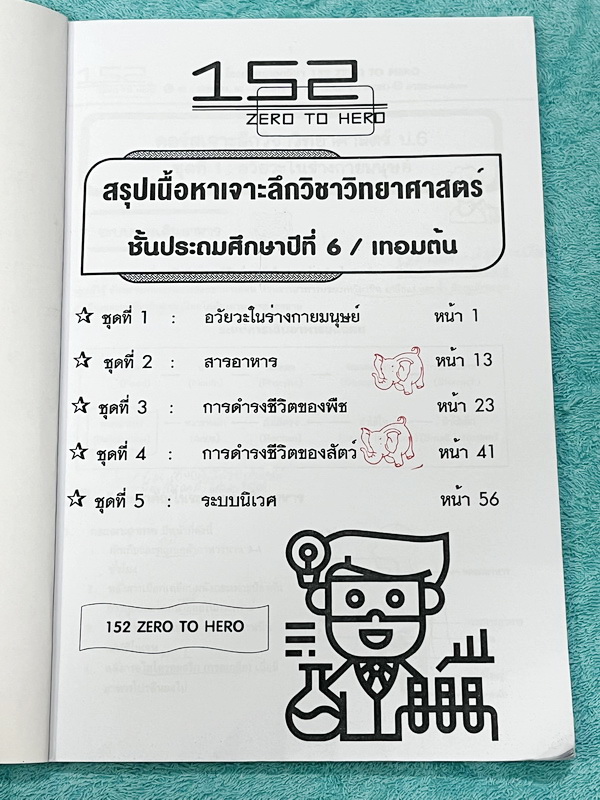 152
ZERO TO HERO
สรุปเนื้อหาเจาะลึกวิชาวิทยาศาสตร์
ชั้นประถมศึกษาปีที่ 6 / เทอมต้น
ชุดที่ 1 : อวัยวะในร่างกายมนุษย์ หน้า 1
ชุดที่ 2 : สารอาหาร หน้า 13
ชุดที่ 3 : การดำรงชีวิตของพืช หน้า 23
ชุดที่ 4 : การดำรงชีวิตของสัตว์ หน้า 41
ชุดที่ 5 : ระบบนิเวศ หน้า 56
152 ZERO TO HERO